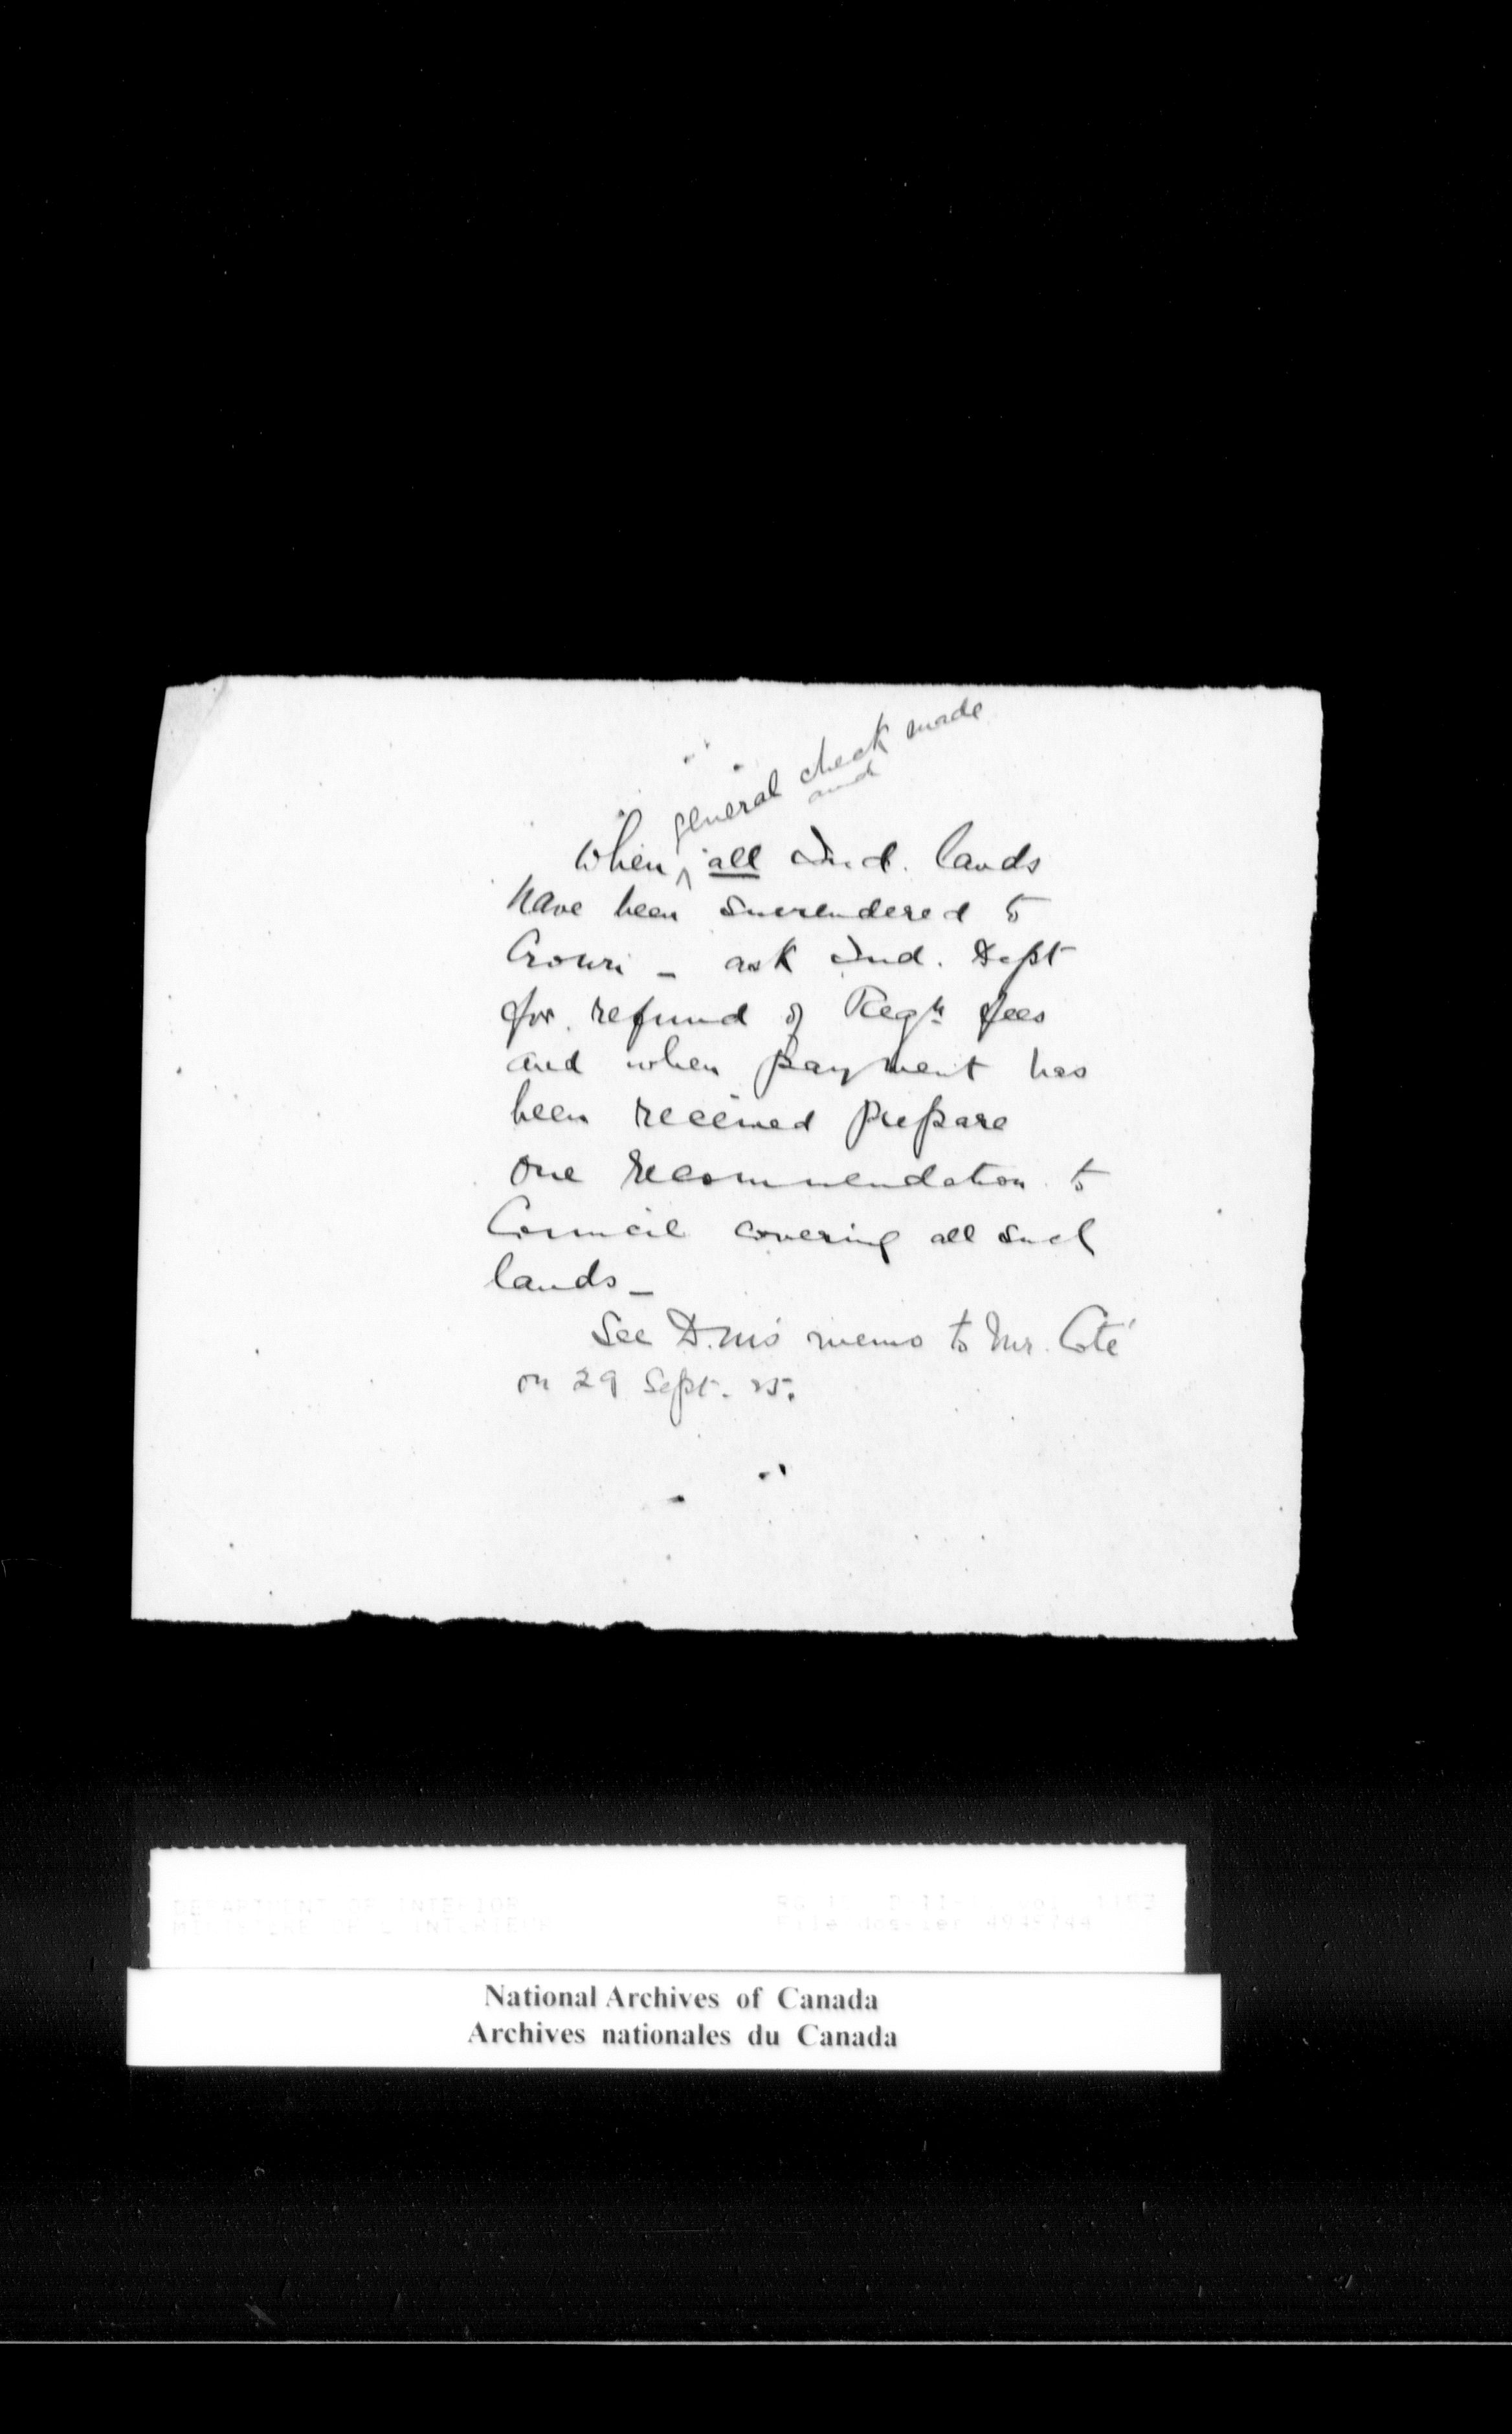 general check made
and
When ^ all Ind. lands
have been surrendered to
Crown - ask Ind. Dept
for refund of Regn fees
and when payment has
been received prepare
one recommendation to
Council covering all such
lands -
See D.M's memo to Mr. Coté
on 29 Sept. 25.
DEPARTMENT OF INTERIOR
National Archives of Canada
Archives nationales du Canada